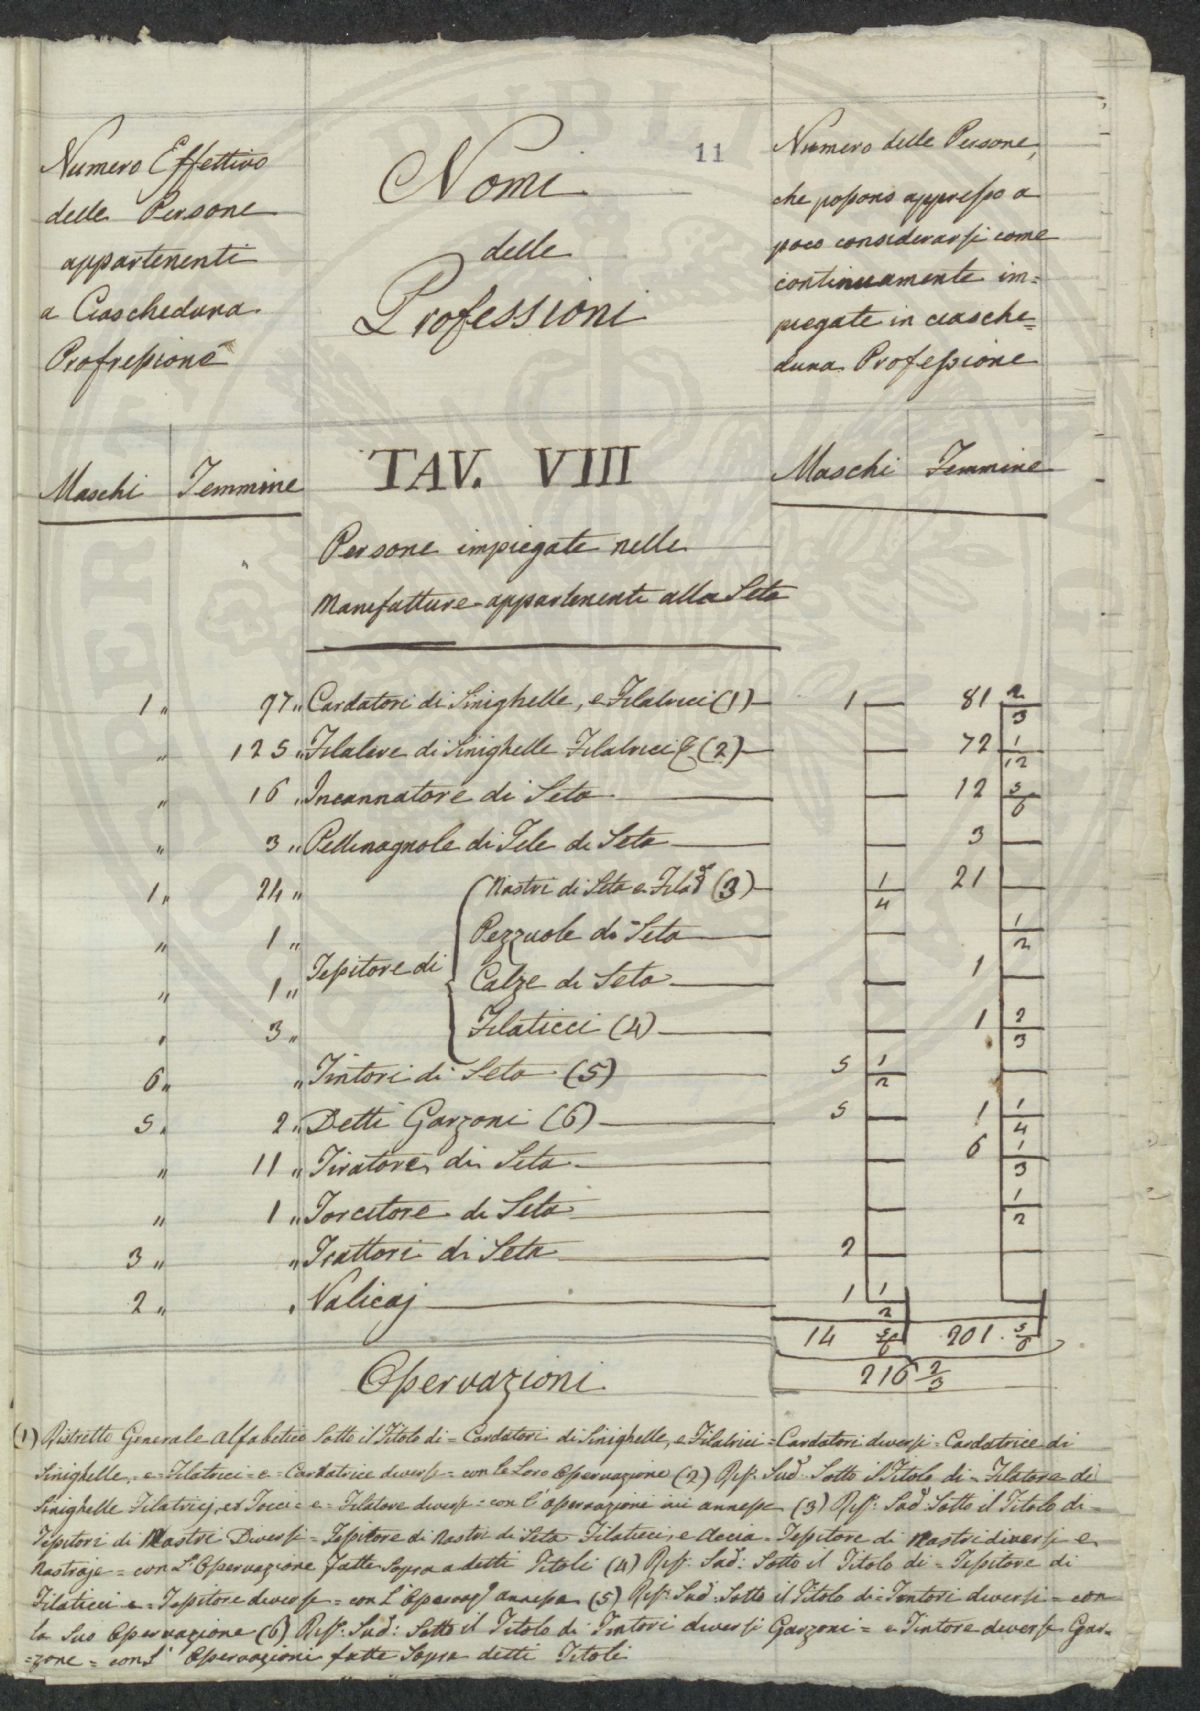 11
Numero Effettivo
delle Persone
appartenenti
a Ciascheduna
Profressione
Nomi
delle
Professioni
Numero delle Persone,
che possono appresso a
poco considerarsi come
continuamente im=
piegate in ciasche=
duna Professione
Maschi Femmine
TAV. VIII
Maschi Femmine
Persone impiegate nelle
Manifatture appartenenti alla Seta
1 „ 97 „ Cardatori di Sinighelle, e Filatrici (1) — 1 — 81 2/3
„ 125 „ Filatere di Sinighelle Filatrici & (2) — 72 1/12
„ 16 „ Incannatore di Seta — 12 5/6
„ 3 „ Pettinagnole di Tele di Seta — 3 —
1 „ 24 „ Nastri di Seta e (3) — 1/4 21 —
„ 1 „ Pezzuole di Seta — 1/2
Tessitore di
„ 1 „ Calze di Seta — 1 —
„ 3 „ Filaticci (4) — 1 2/3
6 „ „ Tintori di Seta (5) — 5 1/2 —
5 „ 2 „ Detti Garzoni (6) — 5 — 1 1/4
„ 11 „ Tiratore di Seta — 6 1/3
„ 1 „ Torcitore di Seta — 1/2
3 „ „ Trattori di Seta — 2 — —
2 „ „ Valicaj — 1 1/2 —
14 5/6 201 5/6
216 2/3
Osservazioni
(1) Ristretto Generale Alfabetico Sotto il Titolo di = Cardatori di Sinighelle, e Filatrici = Cardatori diversi = Cardatrice di
Sinighelle, e Filatrici = e = Cardatrice diverse = con le Loro Osservazione (2) Rist: Sud: Sotto il Titolo di = Filatore di
Sinighelle Filatricj, = e = Filatore diverse = con l'Osservazioni ivi annesse (3) Rist: Sud: Sotto il Titolo di =
Tessitori di Nastri Diversi = Tessitore di Nastri di Seta Filaticci, e Accia = Tessitore di Nastri diversi e
Nastraje = con L'Osservazione fatte Sopra a detti Titoli (4) Rist: Sud: Sotto il Titolo di = Tessitore di
Filaticci e = Tessitore diverse = con L'Osservaz: annessa (5) Rist: Sud: Sotto il Titolo di = Tentori diversi = con
la Sua Osservazione (6) Rist: Sud: Sotto il Titolo di Tintori diversi Garzoni = e Tintore diverse Gar=
=zone = con L' Osservazioni fatte Sopra detti Titoli